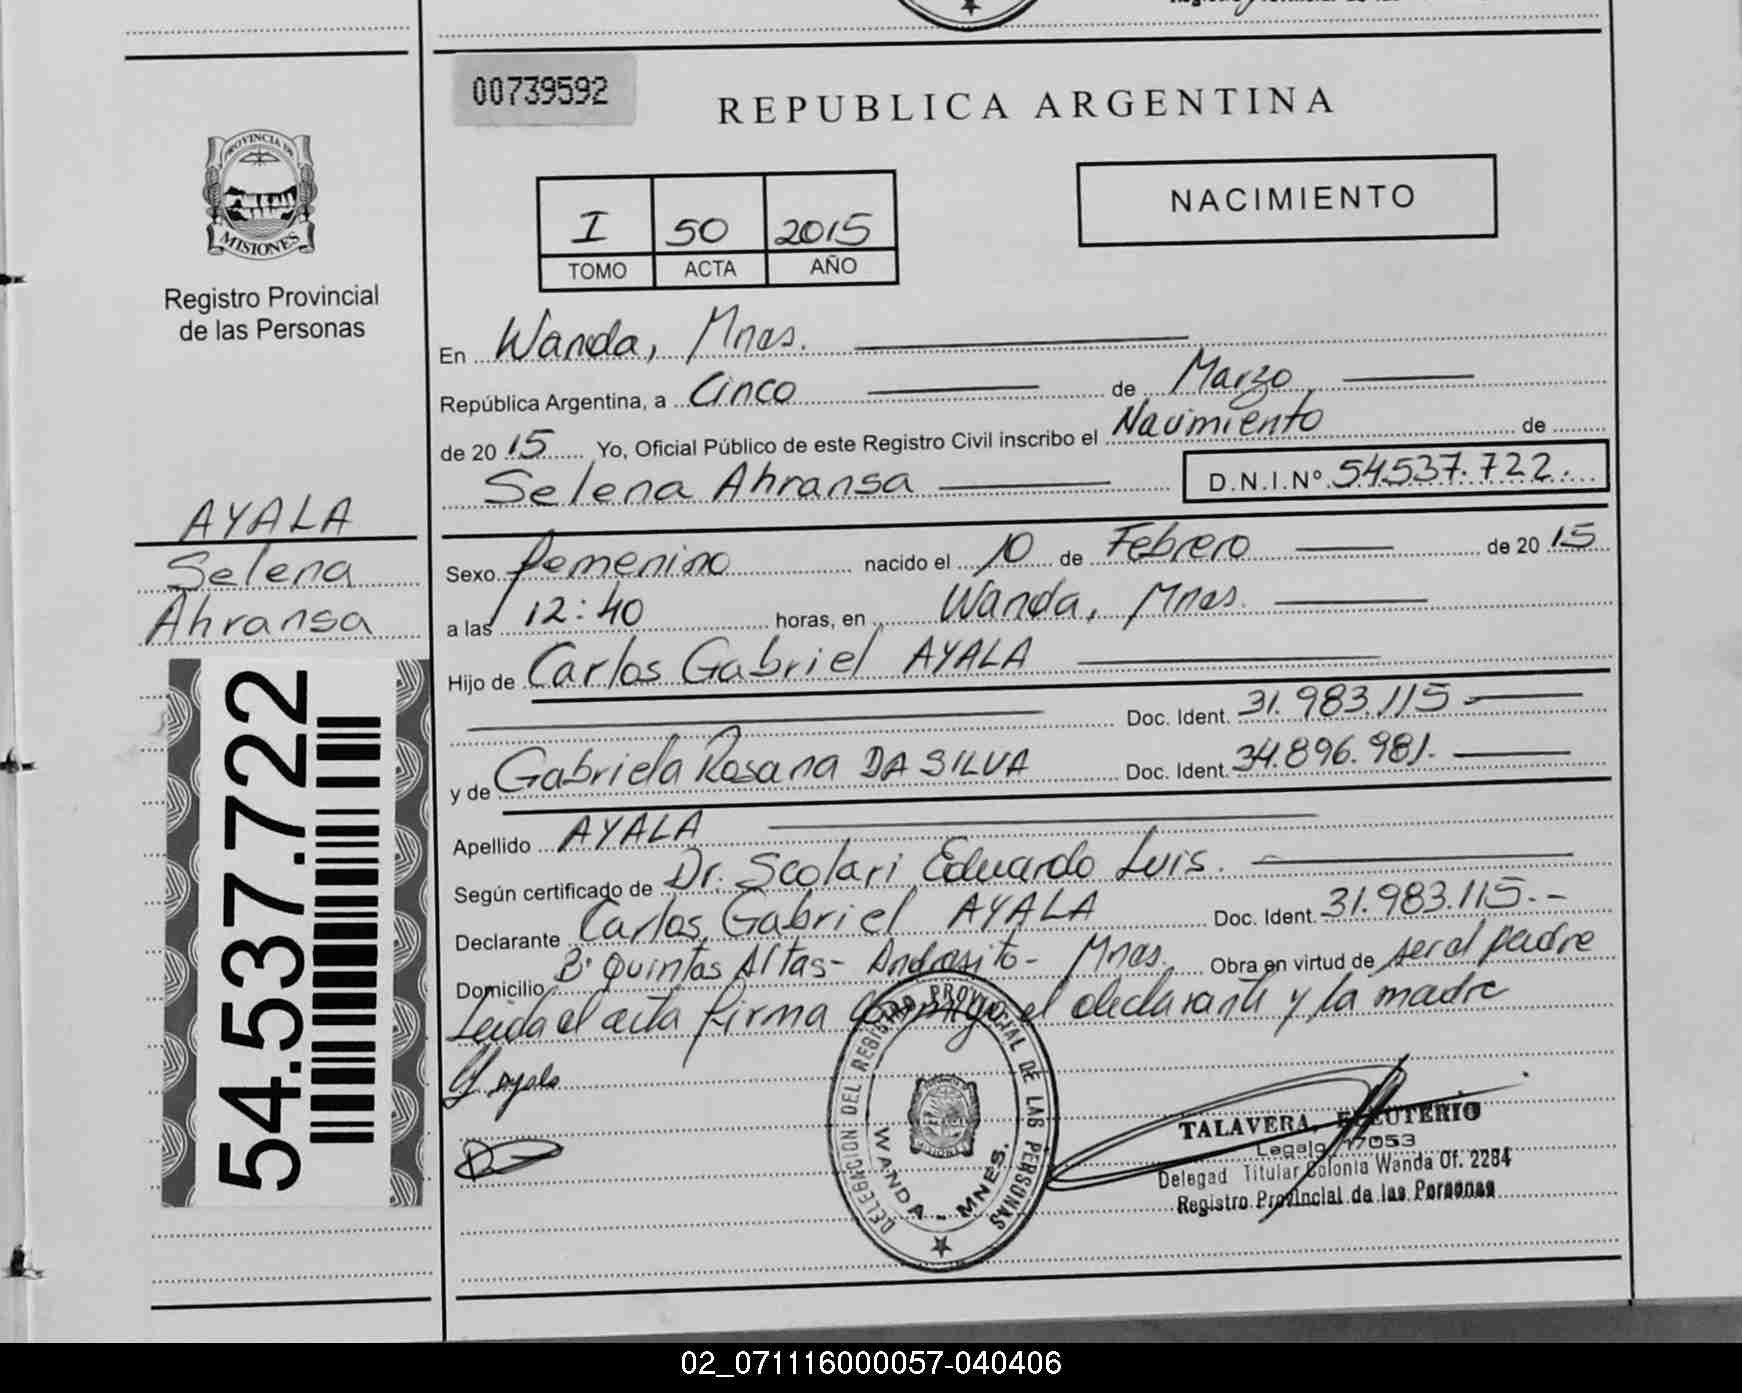 00739592
REPUBLICA ARGENTINA
PROVINCIA DE
MISIONES
Registro Provincial
de las Personas
I 50 2015
TOMO ACTA AÑO
NACIMIENTO
En Wanda, Mnes.
República Argentina, a Cinco de Marzo
de 2015 Yo, Oficial Público de este Registro Civil inscribo el Nacimiento de
Selena Ahransa D.N.I.Nº 54.537.722.
AYALA
Selena
Ahransa
54.537.722
Sexo femenino nacido el 10 de Febrero de 2015
a las 12:40 horas, en Wanda, Mnes.
Hijo de Carlos Gabriel AYALA
Doc. Ident. 31.983.115
y de Gabriela Rosana DA SILVA Doc. Ident. 34.896.981.
Apellido AYALA
Según certificado de Dr. Scolari Eduardo Luis.
Declarante Carlos Gabriel AYALA Doc. Ident. 31.983.115.-
Domicilio Bº Quintas Altas- Andresito- Mnes. Obra en virtud de ser el padre
Leida el acta firma conmigo el declarante y la madre
Ayala
DELEGACION DEL REGISTRO PROVINCIAL DE LAS PERSONAS
WANDA - MNES.
TALAVERA, ELEUTERIO
Legajo 17053
Delegad Titular Colonia Wanda Of. 2284
Registro Provincial de las Personas
02_071116000057-040406